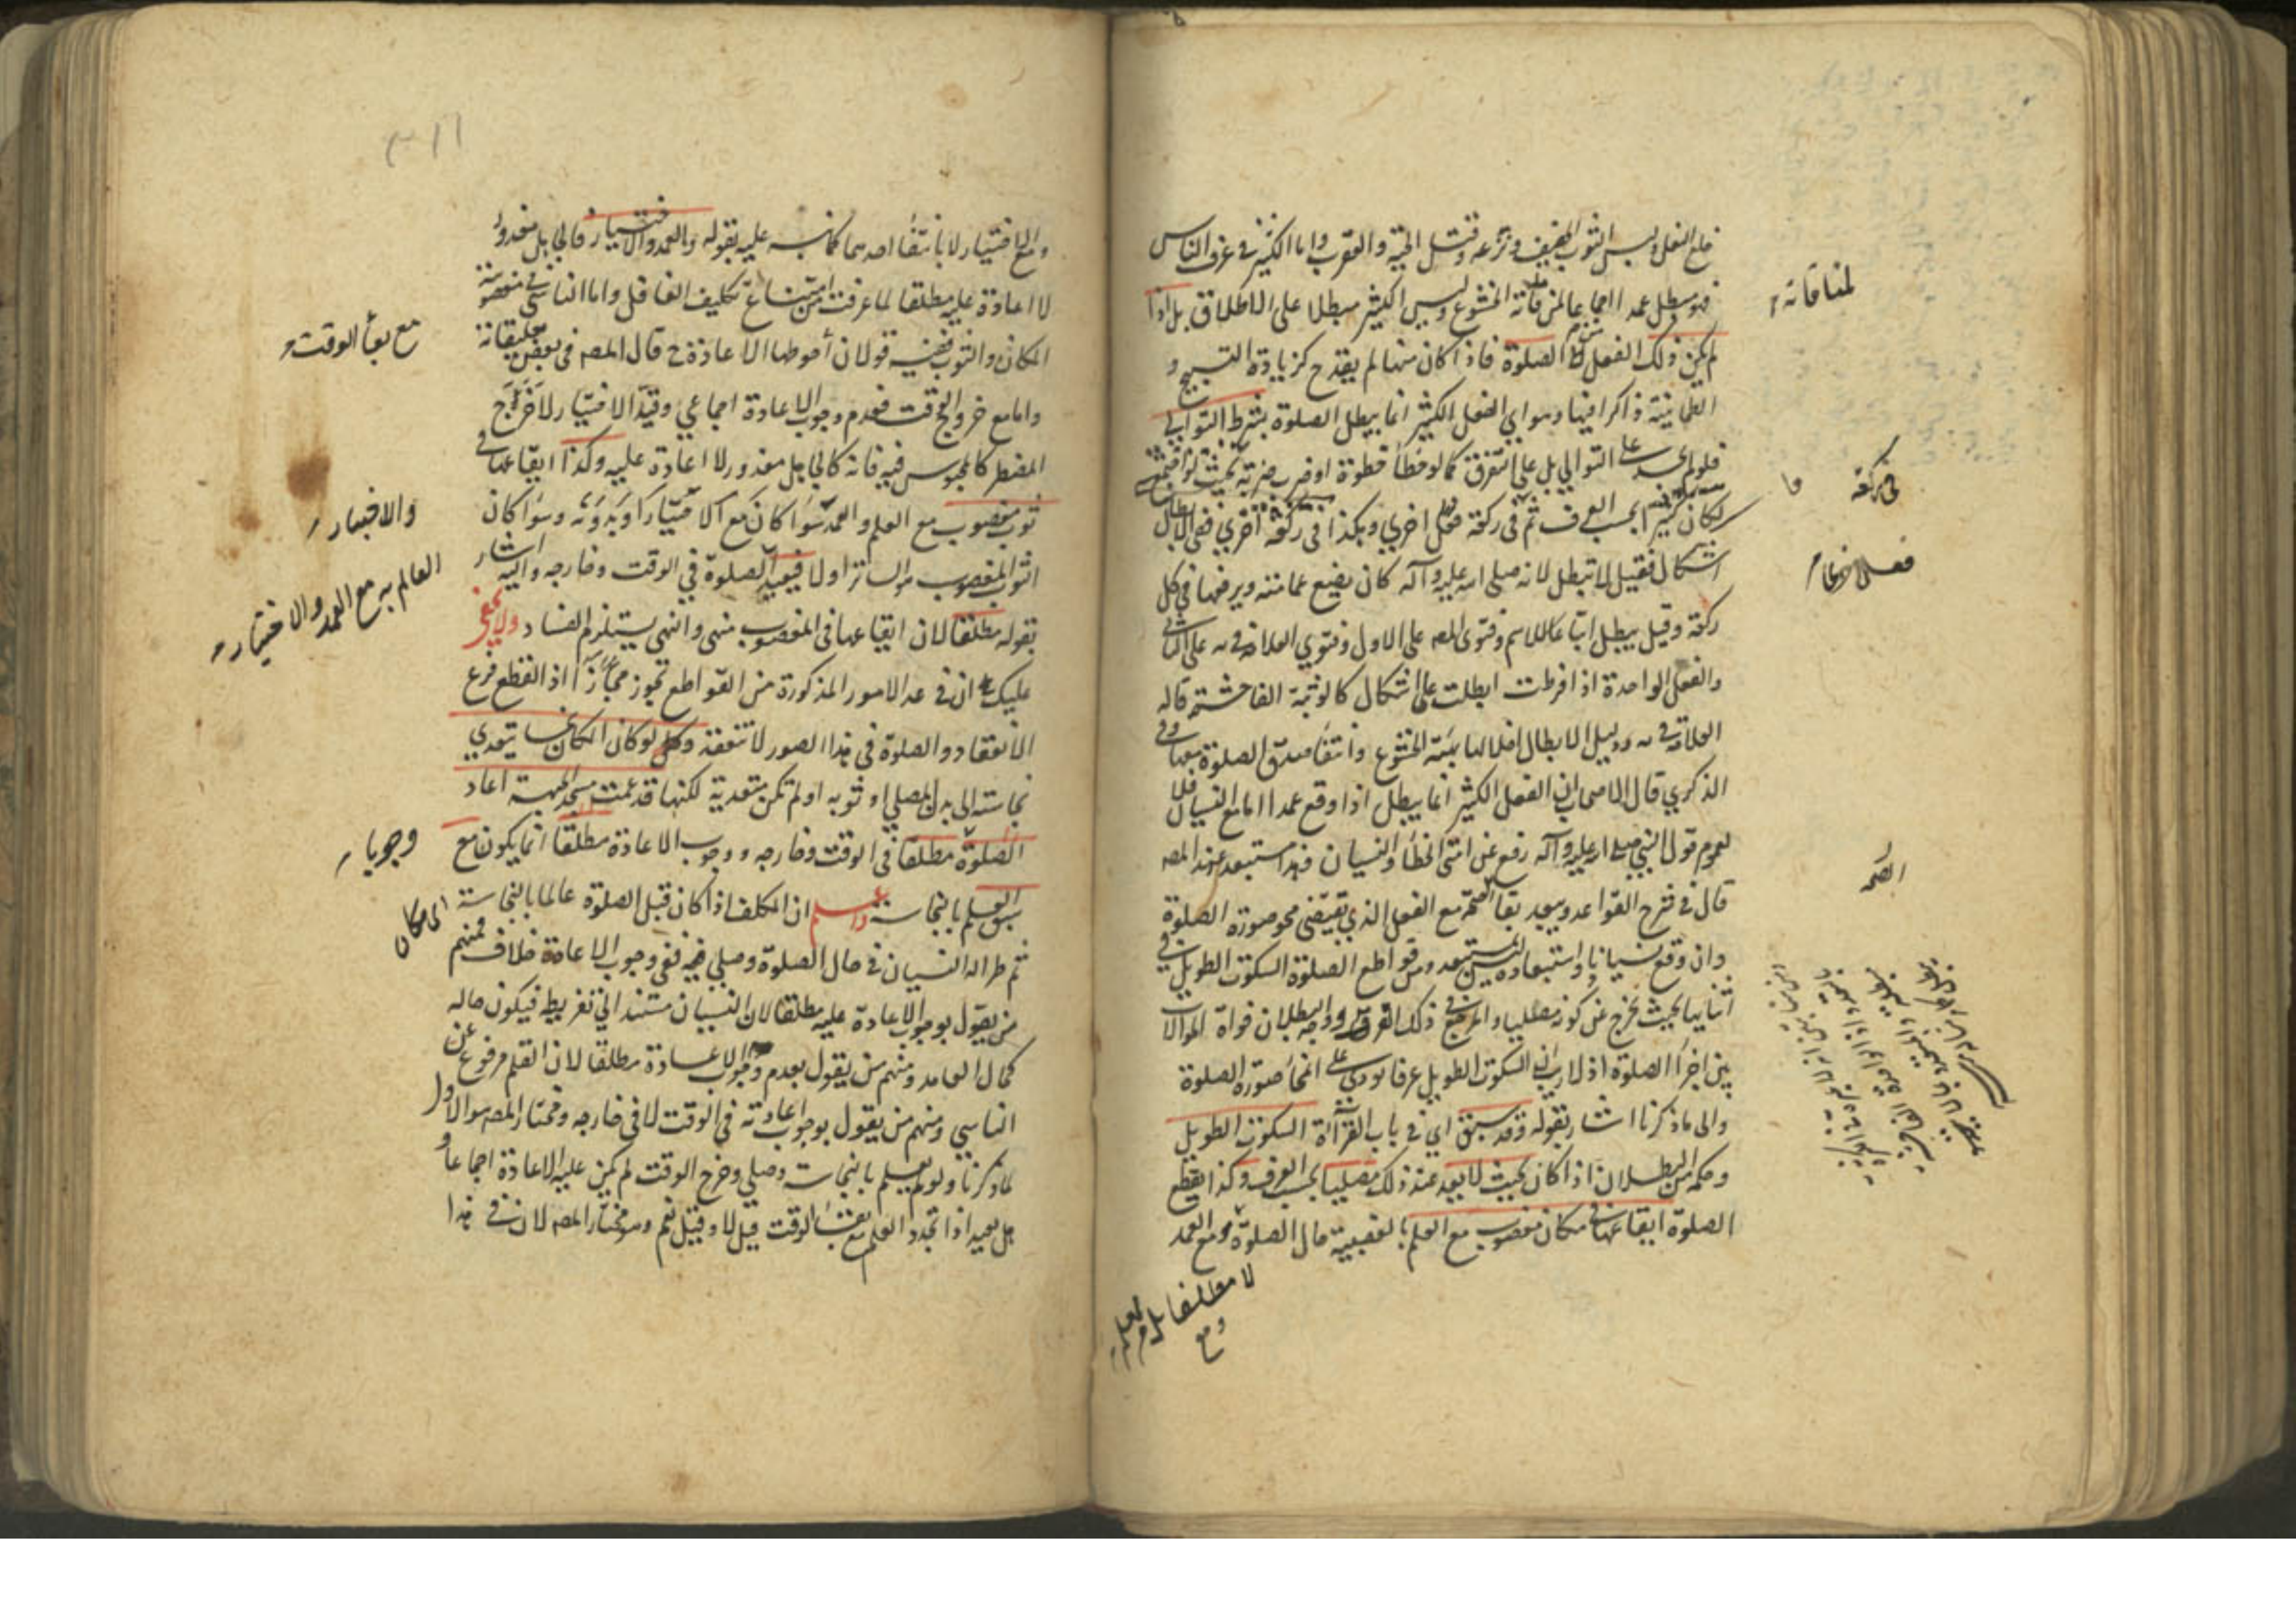 خلع النعل ولبس الثوب الخفيف ونزعه وقتل الحية والعقرب واما الكثير في عرف الناس
فهو مبطل عمدا اجماعا لمنافاته الخشوع وليس الكثير مبطلا على الاطلاق بل اذا
لم يكن ذلك الفعل من الصلوة فاذا كان منها لم يقدح كزيادة التسبيح و
الطمانينة ذاكرا فيها وهو اي الفعل الكثير انما يبطل الصلوة بشرط التوالي
فلو لم على التوالي بل على التفرق كما لو خطا خطوة او ضرب ضربة بحيث لو
لكان كثيرا بحسب العرف ثم في ركعة فعل اخري وهكذا في ركعة اخري ففي الابطال
اشكال فقيل لا تبطل لانه صلى الله عليه وآله كان يضع عمامته ويرفعها في كل
ركعة وقيل يبطل اتباعا للاسم وفتوى المص على الاول وفتوي العلامة في يه على الثاني
والفعل الواحدة اذا افرطت ابطلت على اشكال كالوثبة الفاحشة قاله
العلامة في يه ودليل الابطال اخلالها بهيئة الخشوع وانتفا صدق الصلوة معها وفي
الذكري قال الاصحاب ان الفعل الكثير انما يبطل اذا وقع عمدا اما مع النسيان فلا
لعموم قول النبي صلى الله عليه وآله رفع عن امتي الخطأ والنسيان وهذا مستبعد عند المص
قال في شرح القواعد ويبعد بقا الصحة مع الفعل الذي يقتضي محو صورة الصلوة
وان وقع نسيانا واستبعاده ليس بمستبعد ومن قواطع الصلوة السكوت الطويل في
اثنائها بحيث يخرج عن كونه مصليا والمرجع في ذلك العرف ووجه البطلان فواة الموالات
بين اجزا الصلوة اذ لا ريب ان السكوت الطويل عرفا يودي الى انمحا صورة الصلوة
والى ما ذكرنا اشار بقوله وقد سبق اي في باب القرآة السكوت الطويل
وحكمه من البطلان اذا كان بحيث لا يعد عند ذلك مصليا بحسب العرف وكذا يقطع
الصلوة ايقاعها في مكان مغصوب مع العلم بالغصبية حال الصلوة ومع العمد
لمنافاته
في ركعة
الصحة
لا مطلقا بل مع
ومع
ومع الاختيار لا بانتفا احدهما كما نبه عليه بقوله وبالعمد والاختيار فالجاهل معذور
لا اعادة عليه مطلقا لما عرفت من امتناع تكليف الغافل واما الناسي في مغصوبية
المكان والثوب ففيه قولان أحوطهما الاعادة ح قال المص في بعض تعليقاته
واما مع خروج الوقت فعدم وجوب الاعادة اجماعي وقيد الاختيار لاخراج
المضطر كالمحبوس فيه فانه كالجاهل معذور لا اعادة عليه وكذا ايقاعها في
ثوب مغصوب مع العلم والعمد سوا كان مع الاختيار او بدونه وسوا كان
الثوب المغصوب هو الساتر او لا فيعيد الصلوة في الوقت وخارجه واليه اشار
بقوله مطلقا لان ايقاعها في المغصوب منهي والنهي يستلزم الفساد ولا يخفى
عليك ان في عد الامور المذكورة من القواطع تجوز مجازا اذ القطع فرع
الانعقاد والصلوة في هذا الصور لا تنعقد وكذا لو كان المكان نجسا يتعدي
نجاسته الى بدن المصلي او ثوبه او لم تكن متعدية لكنها قد عمت مسجد الجبهة اعاد
الصلوة مطلقا في الوقت وخارجه ووجوب الاعادة مطلقا انما يكون مع
سبق العلم بالنجاسة واعلم ان المكلف اذا كان قبل الصلوة عالما بالنجاسة
ثم طرا له النسيان في حال الصلوة وصلى فيه ففي وجوب الاعادة خلاف فمنهم
من يقول بوجوب الاعادة عليه مطلقا لان النسيان مستند الى تفريطه فيكون حاله
كحال العامد ومنهم من يقول بعدم وجوب الاعادة مطلقا لان القلم مرفوع عن
الناسي ومنهم من يقول بوجوب اعادته في الوقت لا في خارجه ومختار المص هو الاول
لما ذكرنا ولو لم يعلم بالنجاسة وصلى وخرج الوقت لم يكن عليه الاعادة اجماعا و
هل يعيد اذا تجدد العلم مع بقا الوقت قيل لا وقيل نعم وهو مختار المص لان في هذا
مع بقأ الوقت
والاختيار
العالم به مع العمد والاختيار
وجوبا